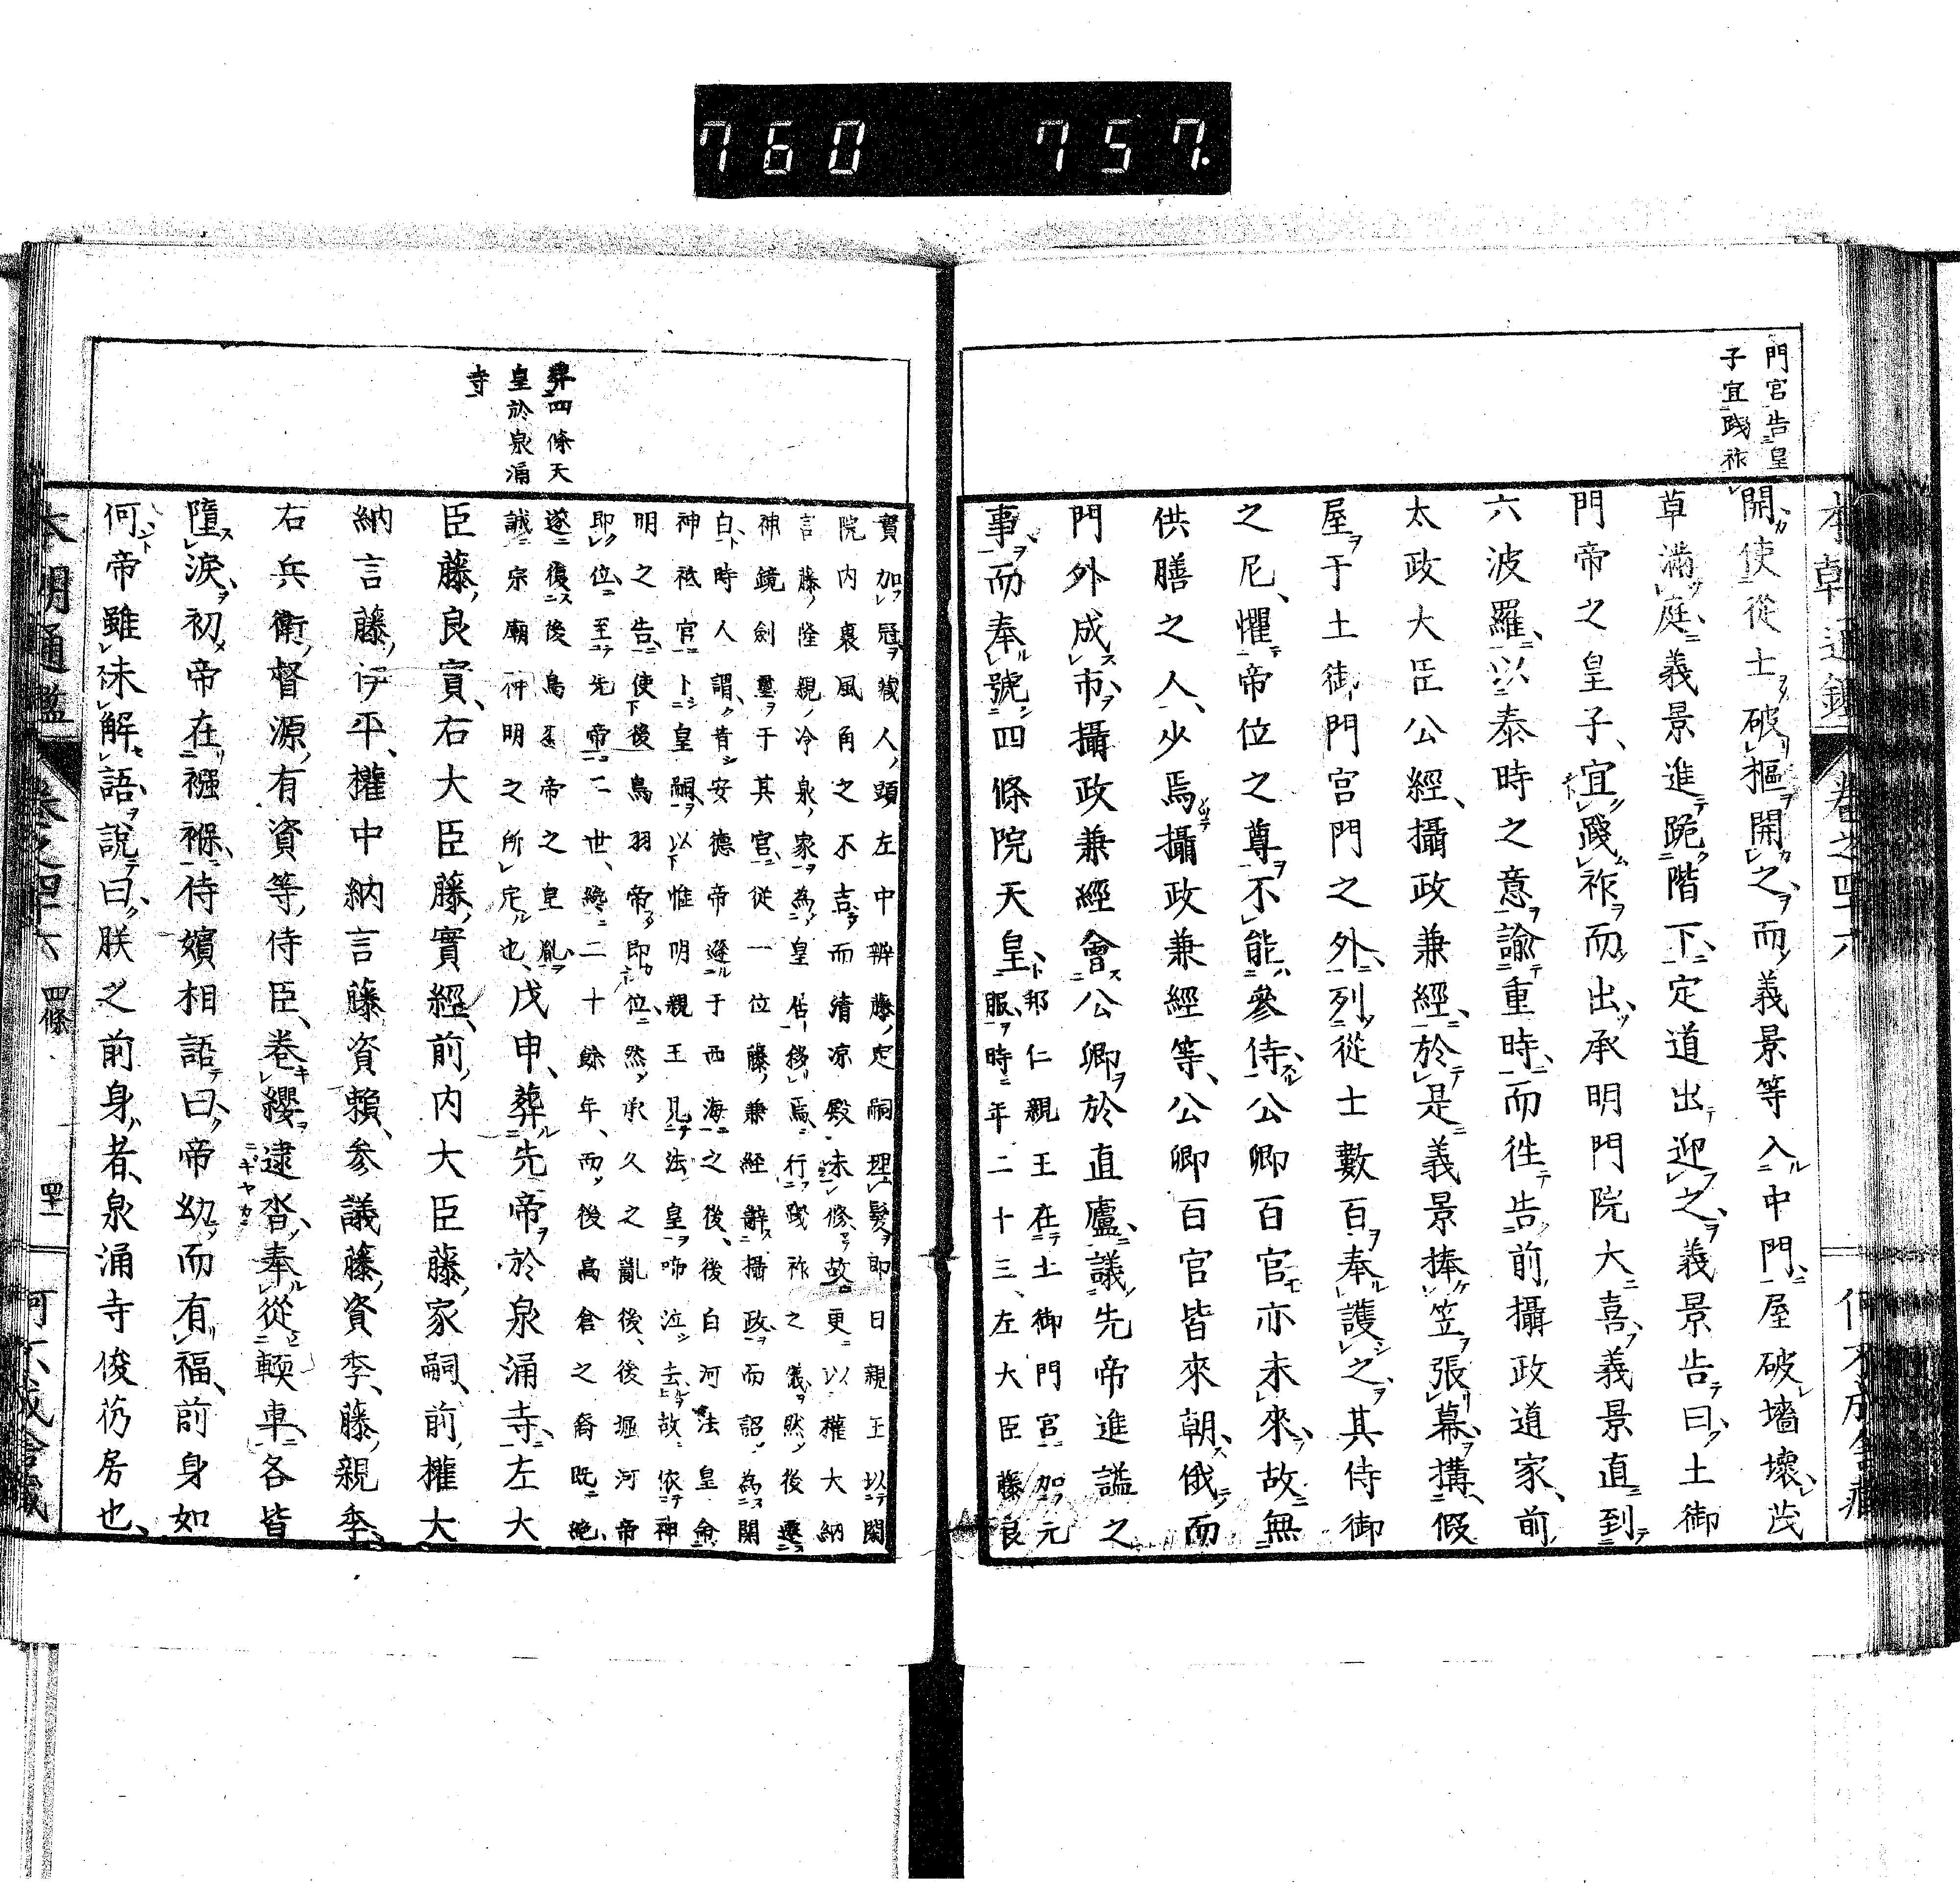 760 757.
門宮告皇
子宜踐祚
本朝通鑑 卷之四十六
開使從士破樞開之而義景等入中門屋破墻壞茂
草滿庭義景進跪階下定道出迎之義景告曰土御
門帝之皇子宜踐祚而出承明門院大喜義景直到
六波羅以泰時之意諭重時而徃告前攝政道家前
太政大臣公經攝政兼經於是義景捧笠張幕搆假
屋于土御門宮門之外列從士數百奉護之其侍御
之尼懼帝位之尊不能參侍公卿百官亦未來故無
供膳之人少焉攝政兼經等公卿百官皆來朝俄而
門外成市攝政兼經會公卿於直廬議先帝進謚之
事而奉號四條院天皇
邦仁親王在土御門宮加元
服時年二十三左大臣藤良
實加冠藏人頭左中辨藤定嗣理髮即日親王以閑
院內裏風角之不吉而清凉殿未修故更以權大納
言藤隆親冷泉家為皇居移焉行踐祚之儀然後遷
神鏡劍璽于其宮從一位藤兼經辭攝政而詔為關
白時人謂昔安德帝遜于西海之後後白河法皇命
神祇官卜皇嗣以惟明親王見法皇啼泣去故依神
明之告使後鳥羽帝即位然承久之亂後後堀河帝
即位至先帝二世纔二十餘年而後高倉之裔既絶
遂復後鳥羽帝之皇胤
誠宗廟神明之所定也
戊申葬先帝於泉涌寺左大
臣藤良實右大臣藤實經前內大臣藤家嗣前權大
納言藤伊平權中納言藤資賴參議藤資季藤親季
右兵衛督源有資等侍臣卷纓逮沓奉從輭車各皆
墮淚初帝在襁褓侍嬪相語曰帝幼而有福前身如
何帝雖未解語說曰朕之前身者泉涌寺俊芿房也
葬四條天
皇於泉涌
寺
本朝通鑑 卷之四十六 四條 四十一